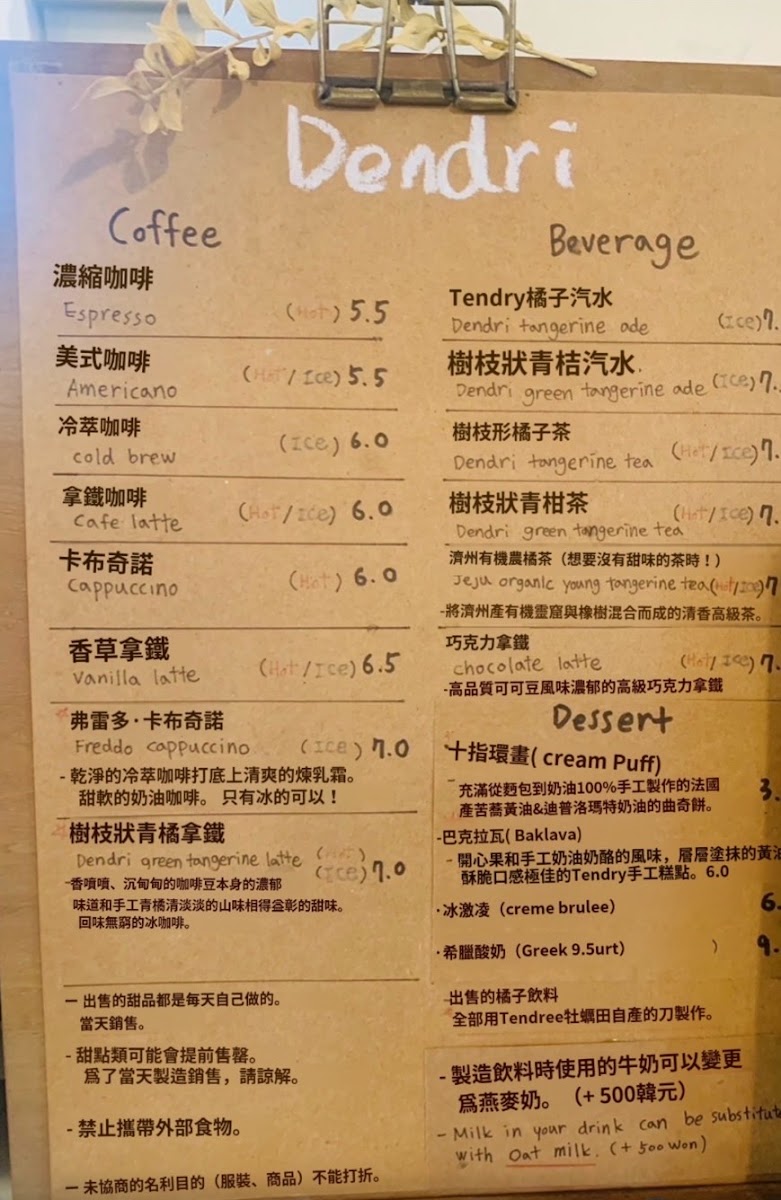 Dendri
Coffee
濃縮咖啡
Espresso (Hot) 5.5
美式咖啡
Americano (Hot/Ice) 5.5
冷萃咖啡
cold brew (ICE) 6.0
拿鐵咖啡
Cafe latte (Hot/ICE) 6.0
卡布奇諾
Cappuccino (Hot) 6.0
香草拿鐵
Vanilla latte (Hot/ICE) 6.5
弗雷多·卡布奇諾
Freddo cappuccino (ICE) 7.0
- 乾淨的冷萃咖啡打底上清爽的煉乳霜。
甜軟的奶油咖啡。 只有冰的可以！
樹枝狀青橘拿鐵
Dendri green tangerine latte (ICE) 7.0
-香噴噴、沉甸甸的咖啡豆本身的濃郁
味道和手工青橘清淡淡的山味相得益彰的甜味。
回味無窮的冰咖啡。
ー 出售的甜品都是每天自己做的。
當天銷售。
- 甜點類可能會提前售罄。
爲了當天製造銷售，請諒解。
- 禁止攜帶外部食物。
ー 未協商的名利目的（服裝、商品）不能打折。
Beverage
Tendry橘子汽水
Dendri tangerine ade (ICE) 7.
樹枝狀青桔汽水
Dendri green tangerine ade (ICE) 7.
樹枝形橘子茶
Dendri tangerine tea (Hot/ICE) 7.
樹枝狀青柑茶
Dendri green tangerine tea (Hot/ICE) 7.
濟州有機農橘茶（想要沒有甜味的茶時！）
Jeju organic young tangerine tea (Hot/ICE) 7
-將濟州產有機靈窟與橡樹混合而成的清香高級茶。
巧克力拿鐵
chocolate latte (Hot/ICE) 7.
-高品質可可豆風味濃郁的高級巧克力拿鐵
Dessert
十指環畫( cream Puff)
充滿從麵包到奶油100%手工製作的法國 3.
產苦蕎黃油&迪普洛瑪特奶油的曲奇餅。
-巴克拉瓦( Baklava)
- 開心果和手工奶油奶酪的風味，層層塗抹的黃油
酥脆口感極佳的Tendry手工糕點。6.0
·冰激凌（creme brulee） 6.
·希臘酸奶（Greek 9.5urt） ) 9.
出售的橘子飲料
全部用Tendree牡蠣田自產的刀製作。
- 製造飲料時使用的牛奶可以變更
爲燕麥奶。（+ 500韓元）
- Milk in your drink can be substitut
with Oat milk. (+ 500 won)